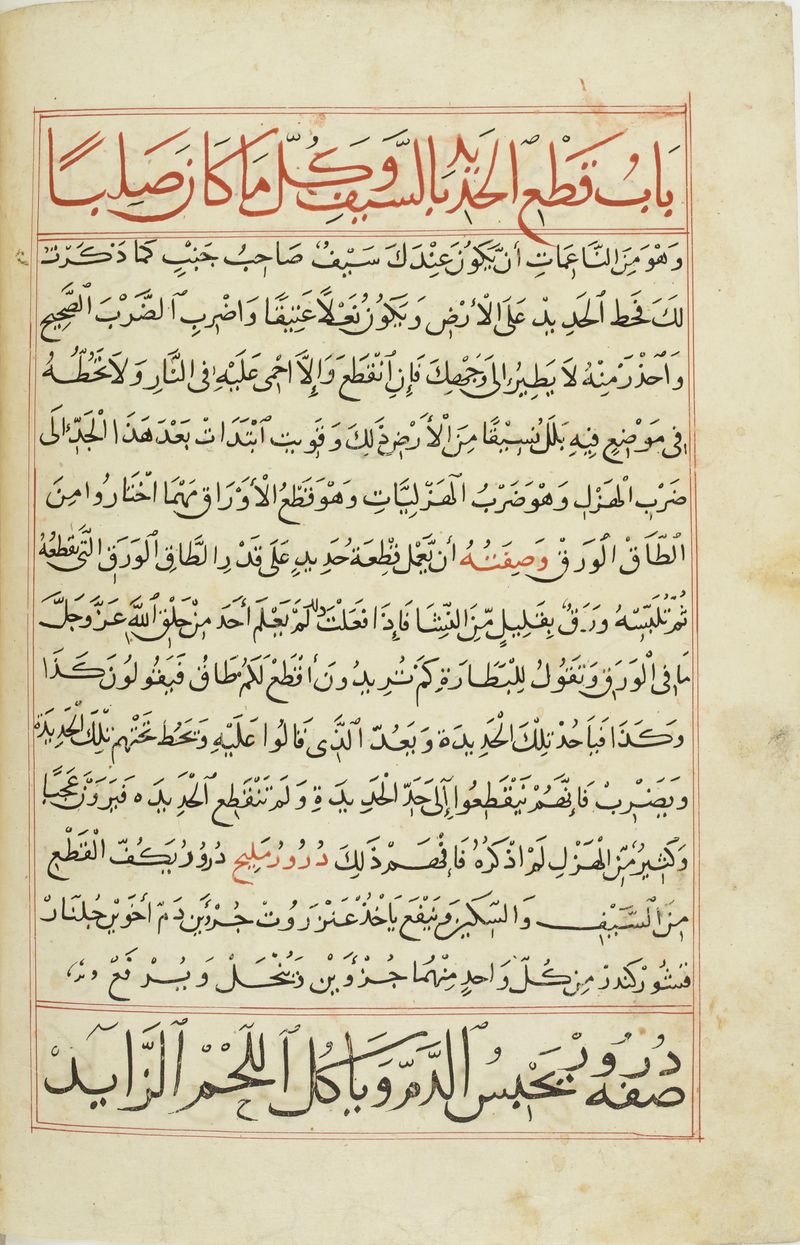 باب قطع الحديد بالسيف وكل ما كان صلبا
وهو من الناعمات أن يكون عندك سيف صاحب جنب كما ذكرت
لك فحط الحديد على الأرض ويكون نعلا عتيقا واضرب الضرب الصحيح
واحذر منه لا يطير إلى وجهك فإن انقطع وإلا احمى عليه في النار ولا تحطه
في موضع فيه بلل من الأرض ذلك وقويت ابتدات بعد هذا الجد الى
ضرب الهزل وهو ضرب الهزليات وهو قطع الأوراق مهما اختاروا من
الطاق الورق وصفته أن تعمل قطعة حديد على قدر الطاق الورق التي تقطعه
ثم تلبسه ورق بقليل من النشا فإذا فعلت لم يعلم أحد من خلق الله عز وجل
ما في الورق وتقول للنظارة كم تريدون أقطع لكم طاق فيقولون كذا
وكذا فيأخذ تلك الحديدة ويعد الذي قالوا عليه ويحط تحتهم تلك الحديدة
ويضرب فإنهم ينقطعوا إلى حد الحديدة ولم تنقطع الحديده فيرون عجبا
وكثير من الهزل لم اذكره فافهم ذلك درور مليح درور يكف القطع
من السيف والسكين وينفع ياخذ عنزروت جزأين دم أخوين جلنار
قشور كندر من كل واحد منهما جزؤين ينخل ويرفع
صفه درور يحبس الدم وياكل اللحم الزايد